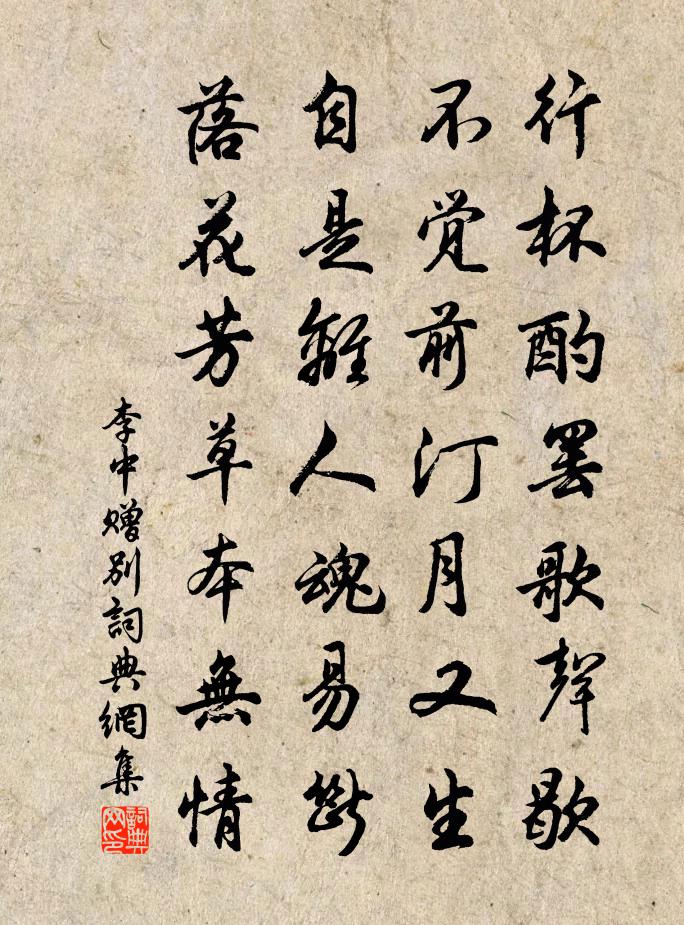 行杯酌罢歌聲歇
不觉前汀月又生
自是離人魂易斷
落花芳草本無情
李中贈别詞典網集
詞典網印